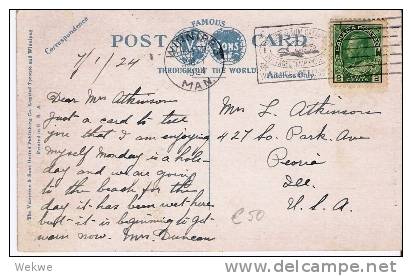 FAMOUS
POST CARD
THROUGHOUT THE WORLD
Correspondence
Address Only
WINNIPEG
MAN.
The Valentine & Sons United Publishing Co. Limited Toronto and Winnipeg
Printed in
7/1/24
Dear Mrs Atkinson
Just a card to tell
you that I am enjoying
myself Monday is a holi-
day and we are going
to the beach for the
day it has been wet here
but it is beginning to get
warm now. Mrs. Duncan
Mrs L. Atkinson
427 So. Park Ave
Peoria
Ill.
U.S.A.
€50
Wekwe